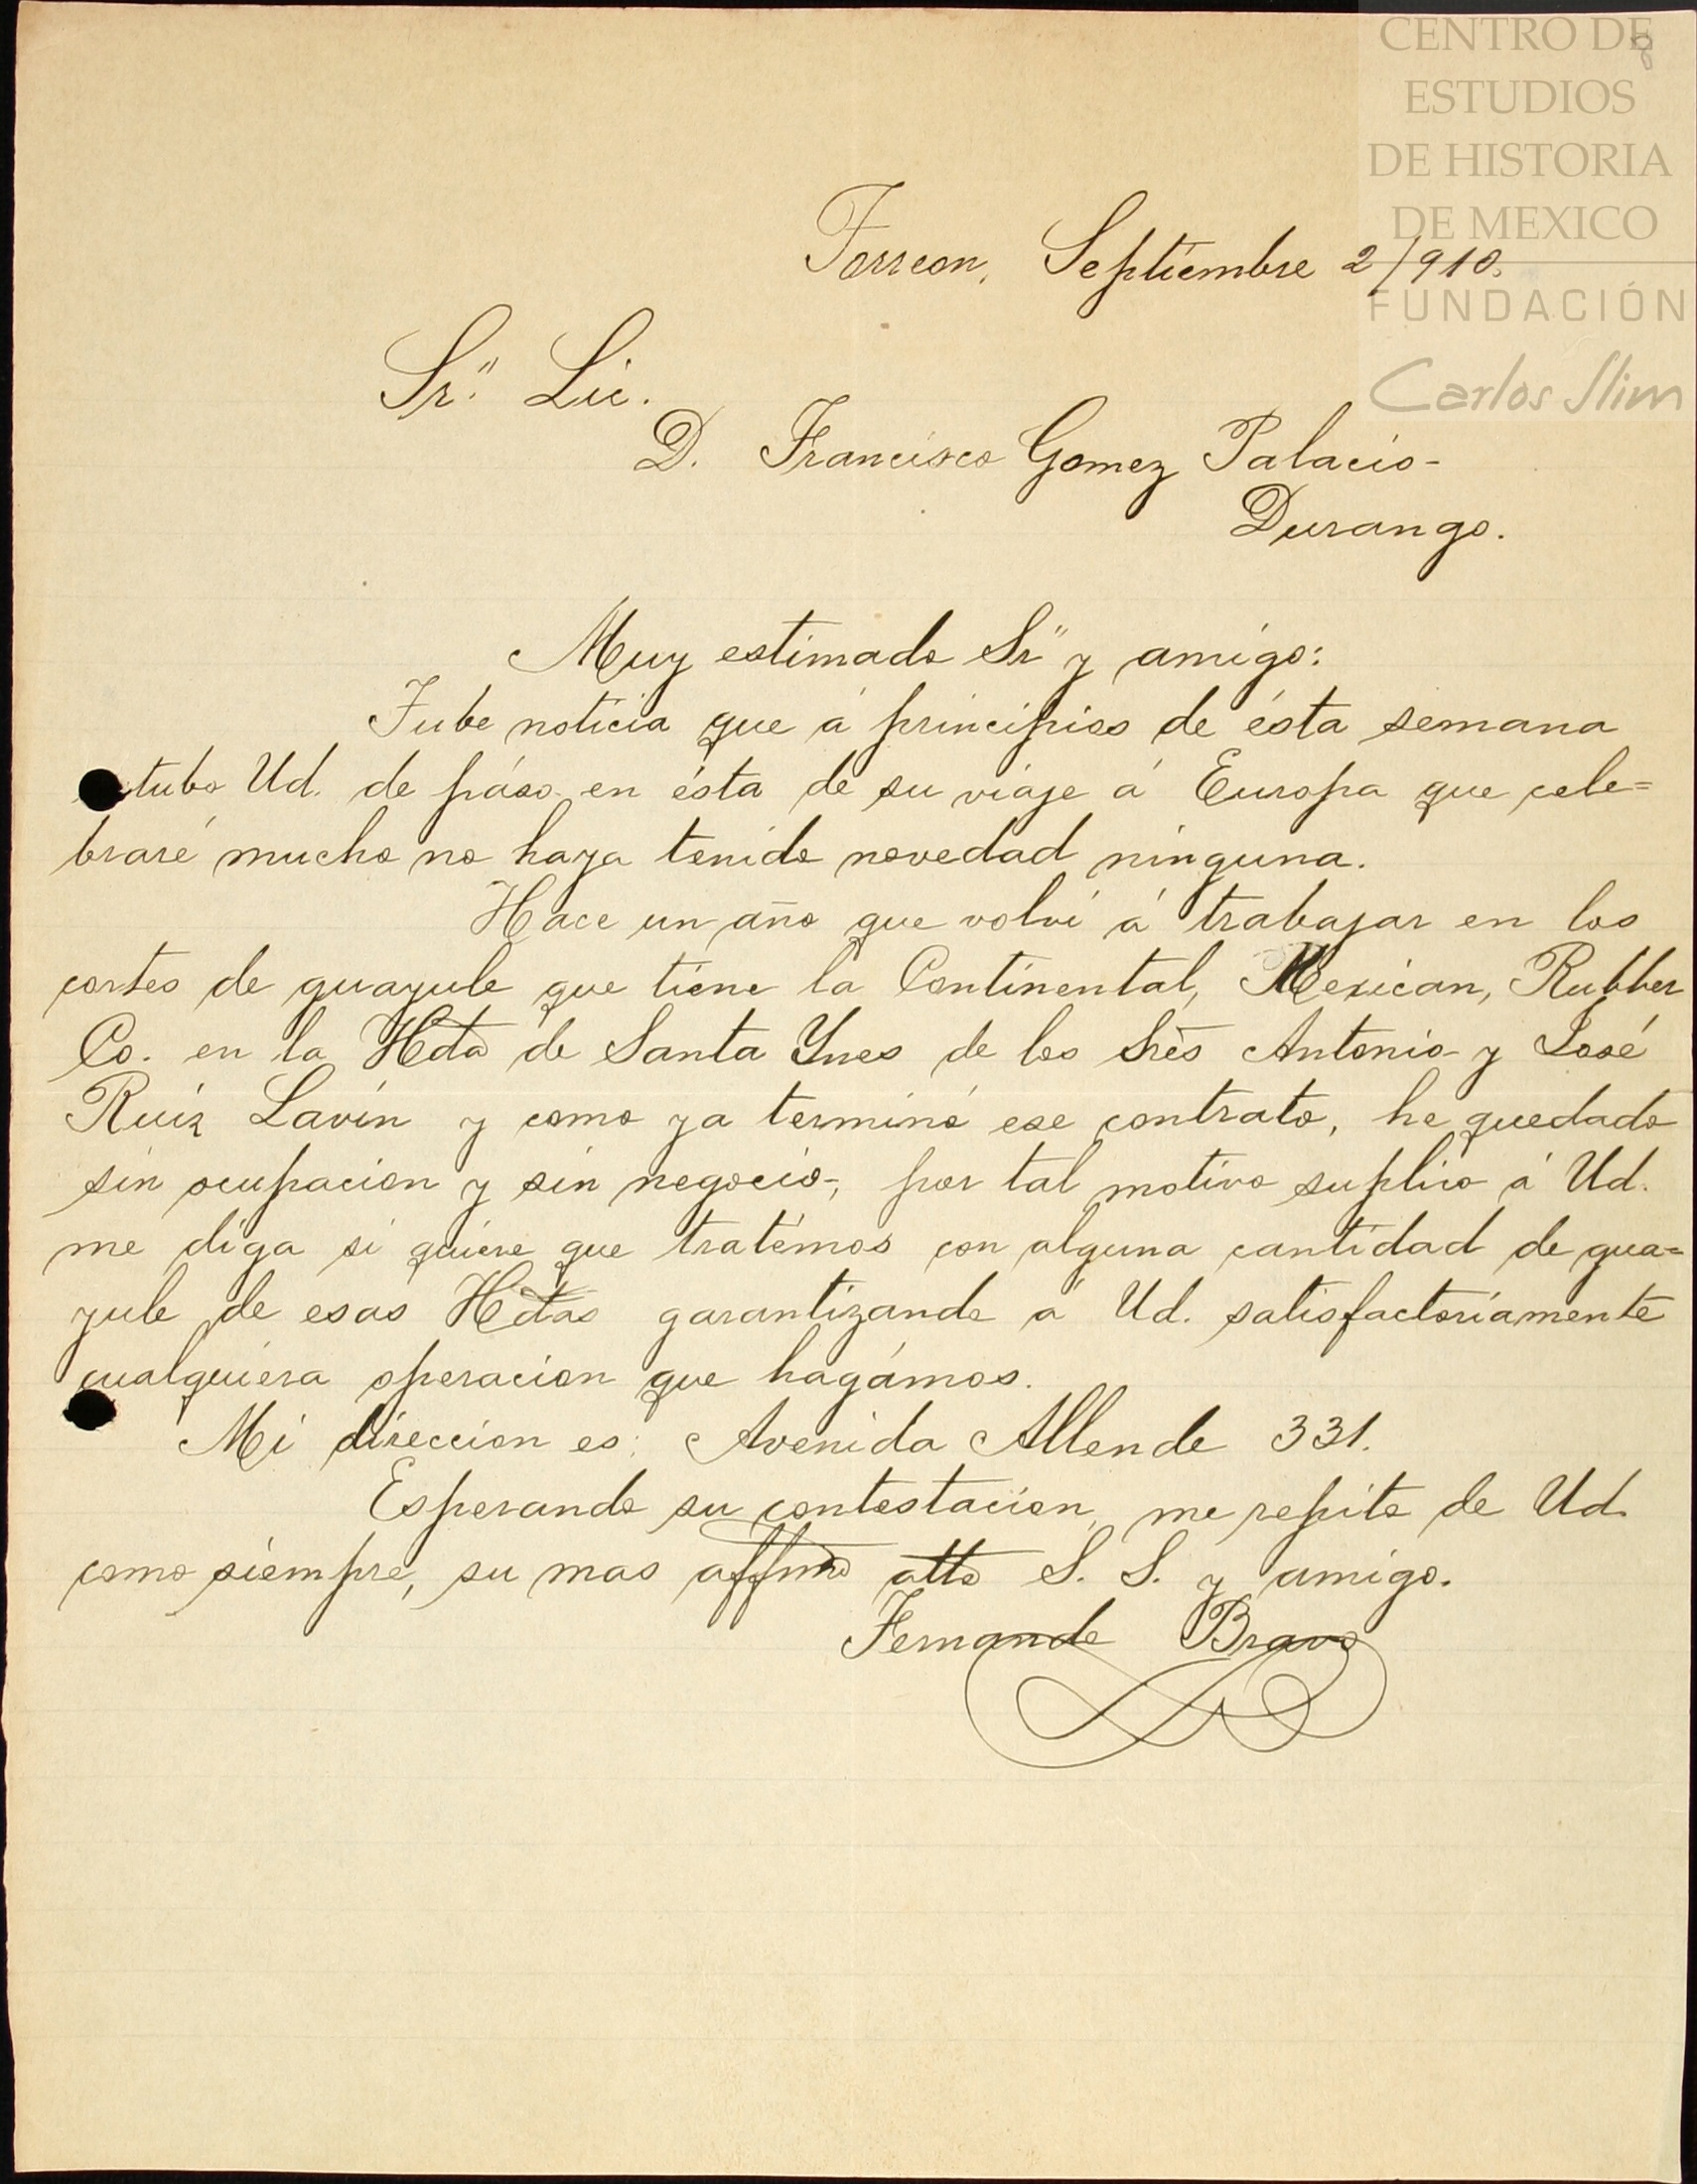 CENTRO DE
ESTUDIOS
DE HISTORIA
DE MEXICO
FUNDACIÓN
Carlos Slim
8
Torreon, Septiembre 2/910.
Sr. Lic.
D. Francisco Gomez Palacio-
Durango.
Muy estimado Sr y amigo:
Tube noticia que á principios de ésta semana
tubo Ud. de páso en ésta de su viaje á Europa que cele=
braré mucho no haya tenido novedad ninguna.
Hace un año que volví á trabajar en los
cortes de guayule que tiene la Continental, Mexican, Rubber
Co. en la Hda de Santa Ynes de los Sres Antonio y José
Ruiz Lavín y como ya terminó ese contrato, he quedado
sin ocupacion y sin negocio-, por tal motivo suplico á Ud.
me diga si quiere que tratémos con alguna cantidad de gua=
yule de esas Hdas garantizando á Ud. satisfactoriamente
cualquiera operacion que hagámos.
Mi direccion es: Avenida Allende 331.
Esperando su contestacion, me repito de Ud.
como siempre, su mas affmo atto S. S. y amigo.
Fernando Bravo